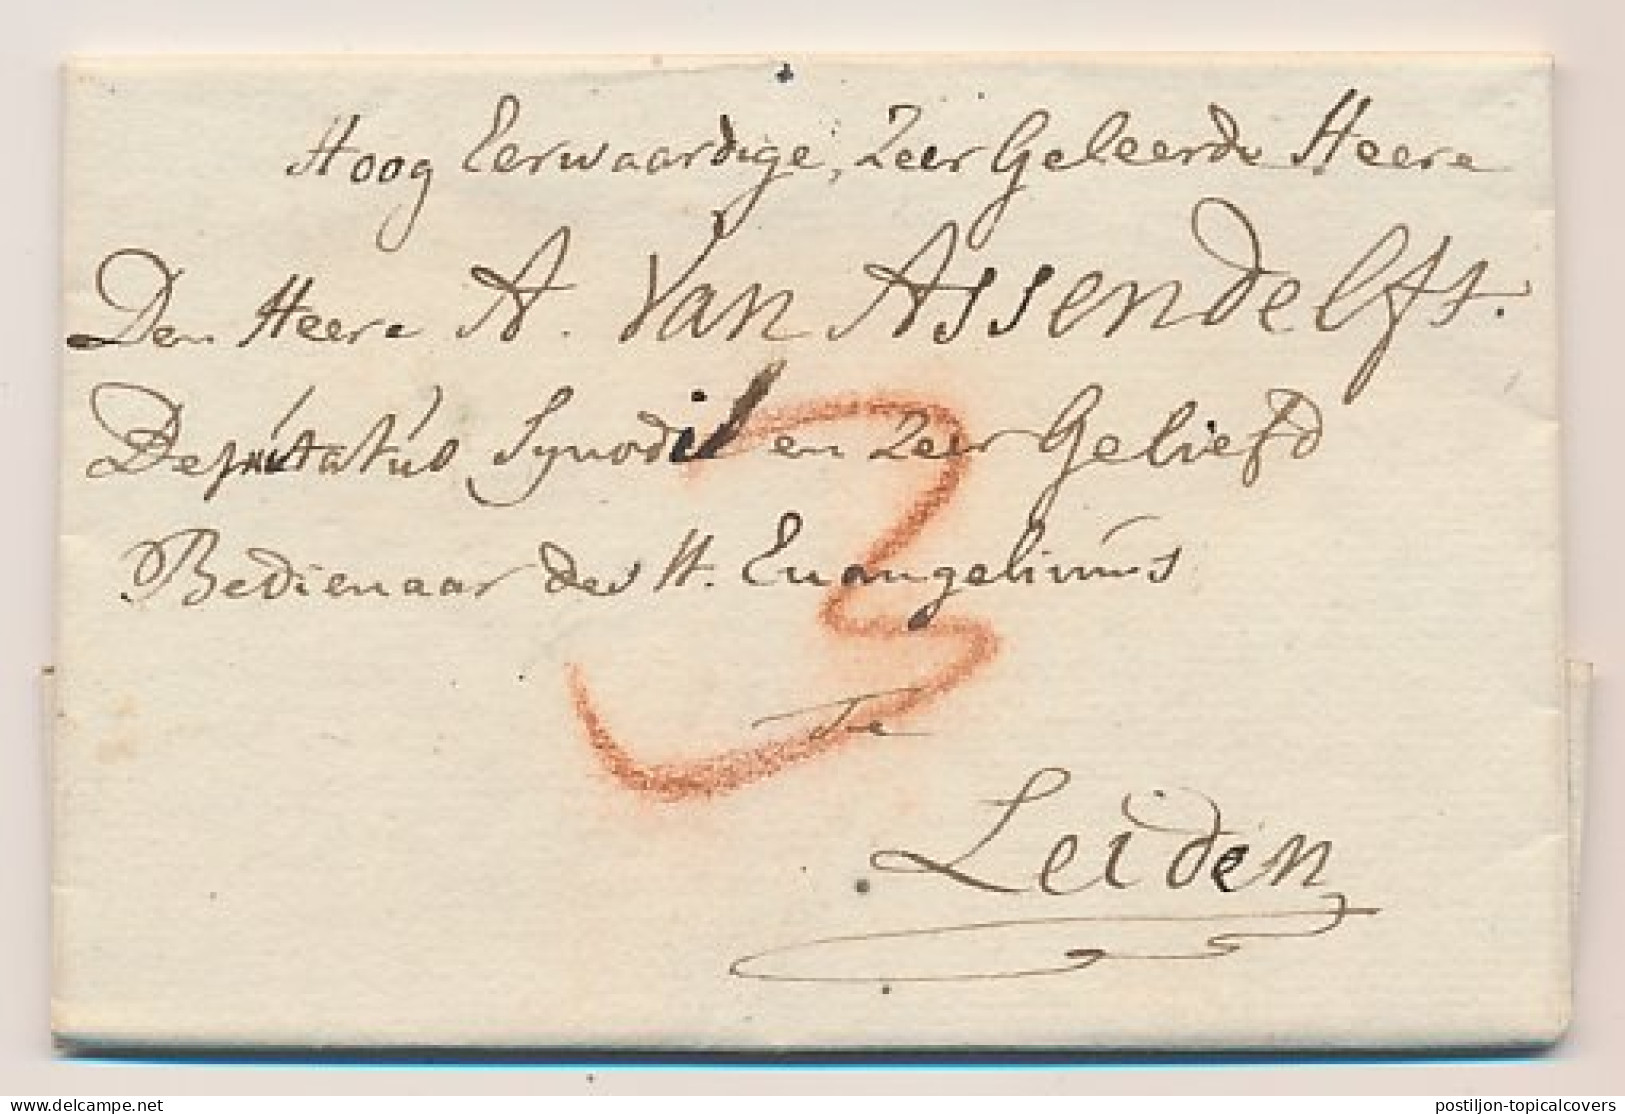 Hoog Eerwaardige, Zeer Geleerde Heere
Den Heere A. Van Assendelft.
Deputatus Synodi en Zeer Geliefd
Bedienaar des H. Euangeliums
3
Te
Leiden
delcampe.net
postiljon-topicalcovers